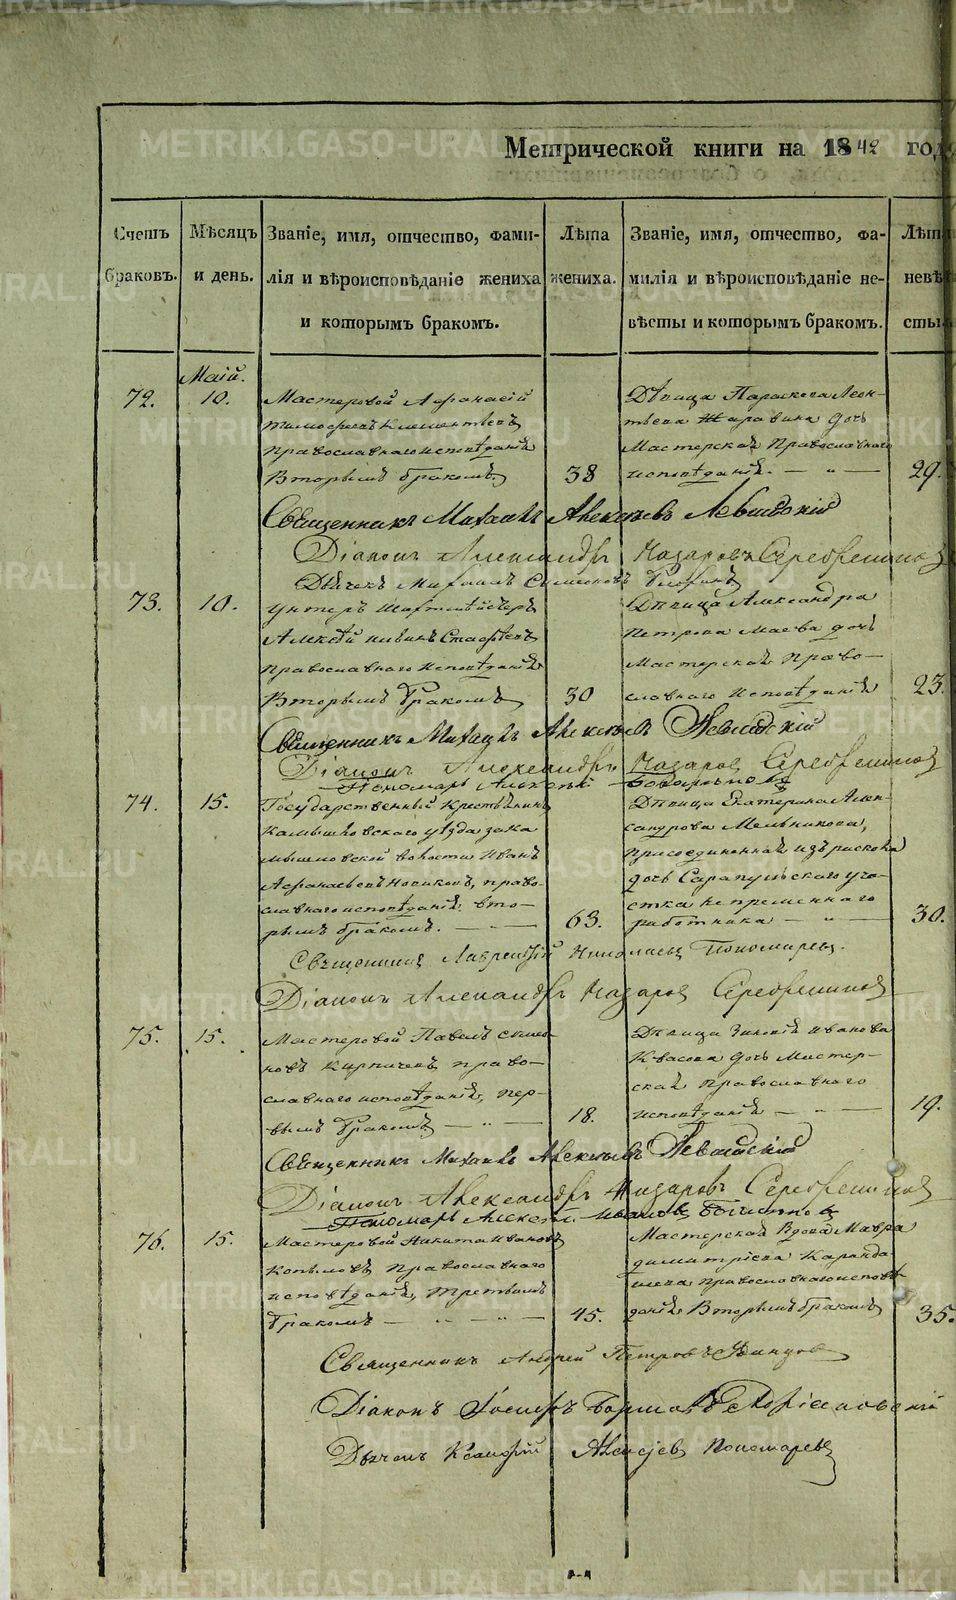 METRIKI.GASO-URAL.RU
Метрической книги на 1842 год
Счетъ браковъ.
Мѣсяцъ и день.
Званіе, имя, отчество, фами-
лія и вѣроисповѣданіе жениха
и которымъ бракомъ.
Лѣта жениха.
Званіе, имя, отчество, фа-
милія и вѣроисповѣданіе не-
вѣсты и которымъ бракомъ.
Лѣта
невѣ
сты
Маій.
72.
10.
Мастеровой Афанасій
Тимофеевъ Клементьевъ
православнаго исповѣданія
вторымъ бракомъ.
38
Дѣвица Параскева Леон-
тьева Жаравина дочь
Мастерская Православнаго
исповѣданія. — „ —
29.
Священникъ Михаилъ Алексѣевъ Левицкій
Діаконъ Александръ Назаровъ Серебрениковъ
Дьячекъ Михаилъ Симеоновъ
73.
10.
Унтеръ Шахтмейстеръ
Алексѣй
православнаго исповѣданія
Вторымъ бракомъ
30
Дѣвица Александра
Петрова Маева дочь
Мастерская право-
славнаго исповѣданія
23.
Священникъ Михаилъ Алексѣевъ Левицкій
Діаконъ Александръ Назаровъ Серебрениковъ
Пономарь Алексѣй
74.
15.
Государственный Крестьянинъ
Камышловскаго уѣзда зака
мышловской волости Иванъ
Афанасьевъ Новиковъ, право-
славнаго исповѣданія, вто-
рымъ бракомъ. — —
63.
Дѣвица Екатерина Алек-
сандрова Мельникова,
присоединенная изъ раскола
дочь Сарапульскаго уча-
стка непременнаго
работника — „ —
30.
Священникъ Лаврентій Николаевъ Пономаревъ.
Діаконъ Александръ Назаровъ Серебрениковъ
75.
15.
Мастеровой Павелъ Симео-
новъ Кирпичевъ, право-
славнаго исповѣданія, пер-
вымъ бракомъ — „ —
18.
Дѣвица Зиновія Иванова
Квасова дочь Мастер-
ская православнаго
исповѣданія — „ —
19.
Священникъ Михаилъ Алексѣевъ Левицкій
Діаконъ Александръ Назаровъ Серебрениковъ
Пономарь Алексѣй Ивановъ
76.
15.
Мастеровой Никита Ивановъ
Копыловъ Православнаго
исповѣданія, третьимъ
бракомъ — „ — „ —
45.
Мастерская Вдова Мавра
Димитріева Каранда
шева православнаго исповѣ-
данія Вторымъ бракомъ
35.
Священникъ Андрей Петровъ
Діаконъ
Дьячекъ Алексѣевъ Пономаревъ